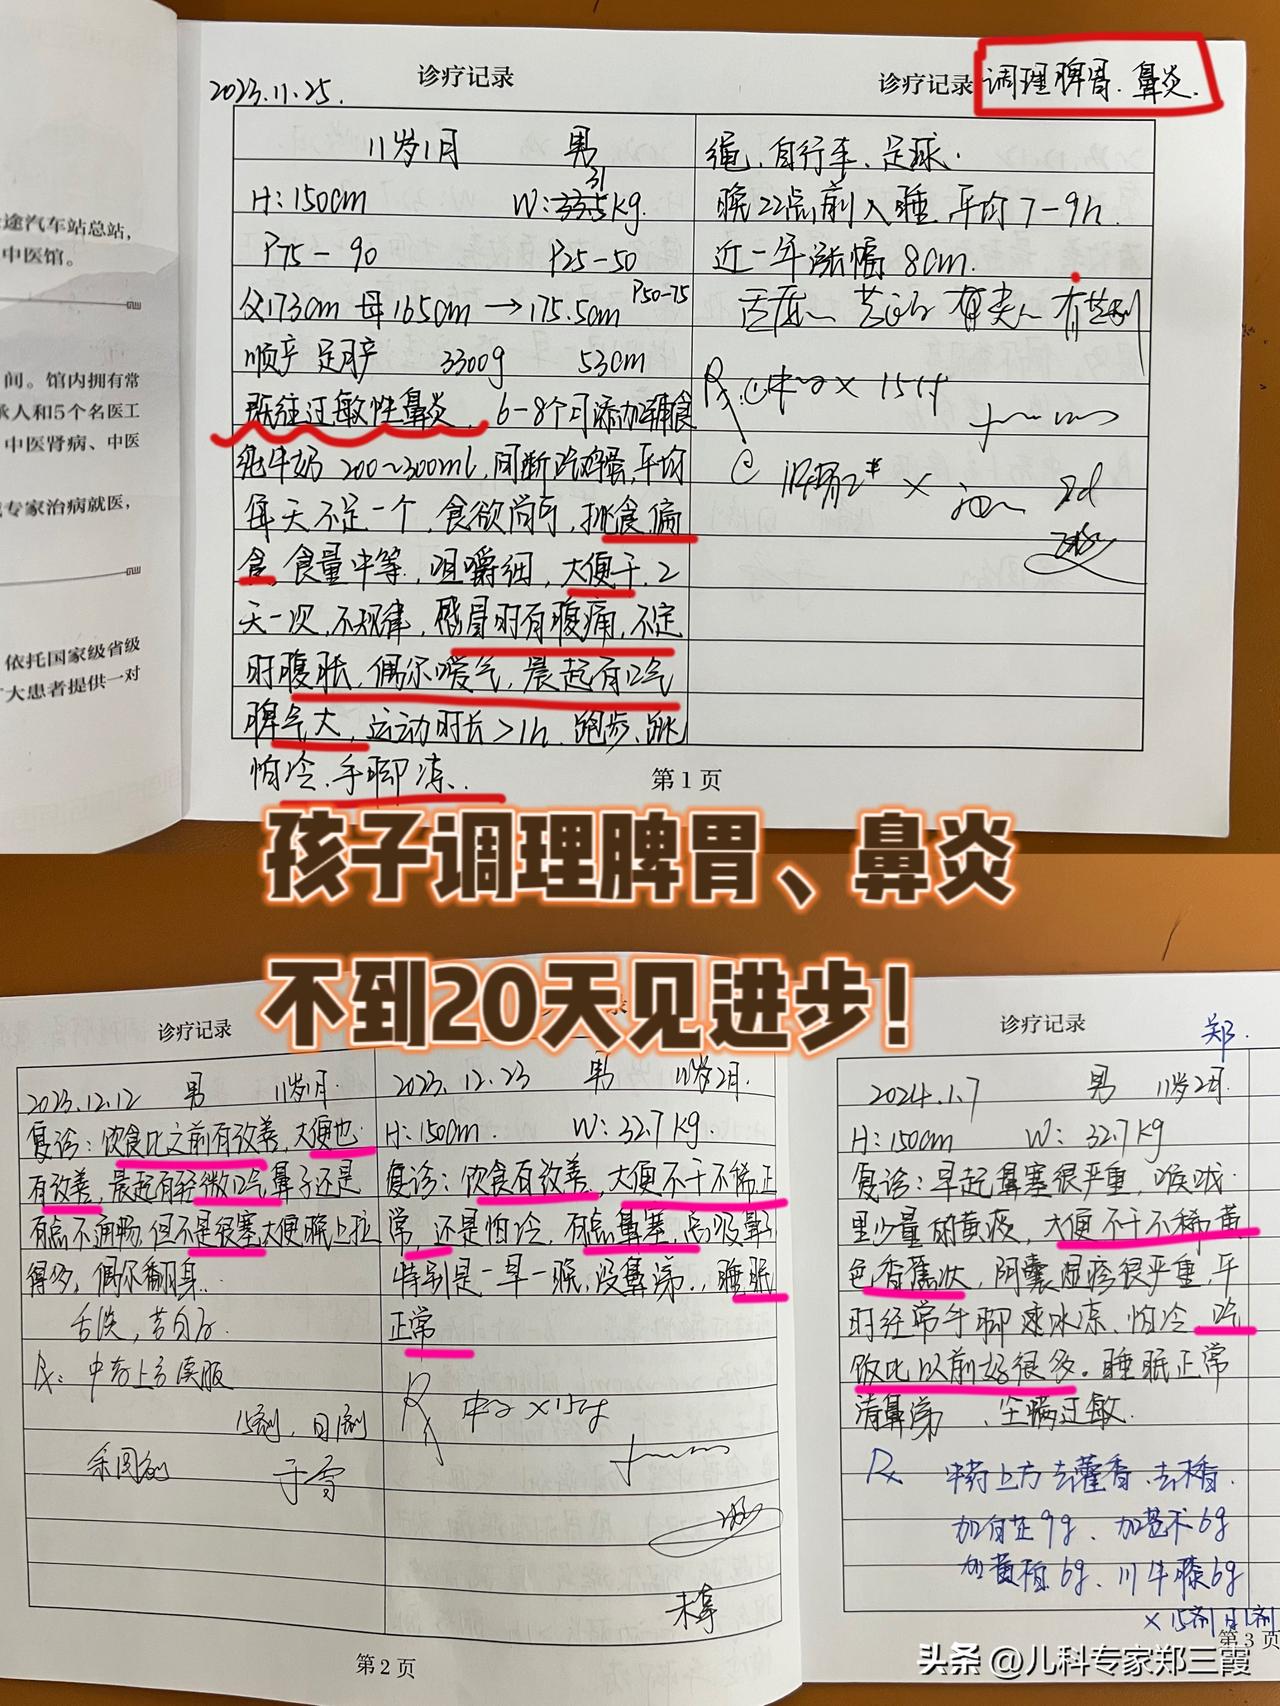 诊疗记录
诊疗记录
调理脾胃.鼻炎.
2023.11.25.
11岁1月 男
H:150cm W:33.5kg.
31
P75-90 P25-50
父173cm 母165cm→175.5cm P50-75
顺产 足月产 3300g 53cm
既往过敏性鼻炎. 6-8个月添加辅食
纯牛奶 200~300ml,间断吃鸡蛋,平均
每天不足一个,食欲尚可,挑食偏
食,食量中等,咀嚼细,大便干,2
天一次,不规律,感冒时有腹痛,不定
时腹胀,偶尔嗳气,晨起有口气
脾气大,运动时长>1h.跑步、跳
怕冷.手脚凉..
绳、自行车、足球.
晚22点前入睡,平均7-9h.
近一年涨幅8cm.
Rx ① 中药×15付
② 2# × 2d
第1页
途汽车站总站,
中医馆。
间。馆内拥有常
承人和5个名医工
中医肾病、中医
专家治病就医,
依托国家级省级
广大患者提供一对
孩子调理脾胃、鼻炎
不到20天见进步!
诊疗记录
2023.12.12 男 11岁1月.
复诊:饮食比之前有改善,大便也
有改善,晨起有轻微口气鼻子还是
有点不通畅,但不是很塞大便晚上拉
得多,偶尔翻身..
舌淡,苔白.
Rx:中药上方续服
15剂,日1剂
第2页
2023.12.23 男 11岁2月.
H:150cm. W:32.7kg.
复诊:饮食有改善,大便不干不稀,正
常,还是怕冷,有点鼻塞,总吸鼻子
特别是一早一晚,没鼻涕..睡眠
正常
Rx 中药×15付
未拿
诊疗记录
郑.
2024.1.7 男 11岁2月
H:150cm W:32.7kg
复诊:早起鼻塞很严重,喉咙
里少量的黄痰,大便不干不稀黄
色香蕉状,阴囊湿疹很严重,平
时经常手脚冰凉、怕冷,吃
饭比以前好很多。睡眠正常
清鼻涕、尘螨过敏.
Rx 中药上方去藿香、去木香.
加白芷9g、加苍术6g
加黄柏6g、川牛膝6g
×15剂日1剂
第3页
头条@儿科专家郑三霞